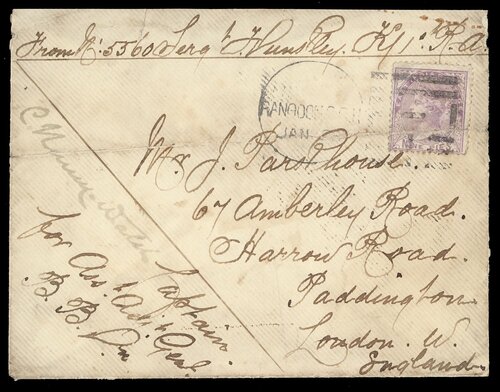 From No. 5560 Sergt Hunsley. K/1st R.A.
RANGOON
JAN
Mr J. Parsthouse.
67 Amberley Road.
Harrow Road.
Paddington
London. W.
England.
Captain
for Asst Adjt Genl
B. B. Dn